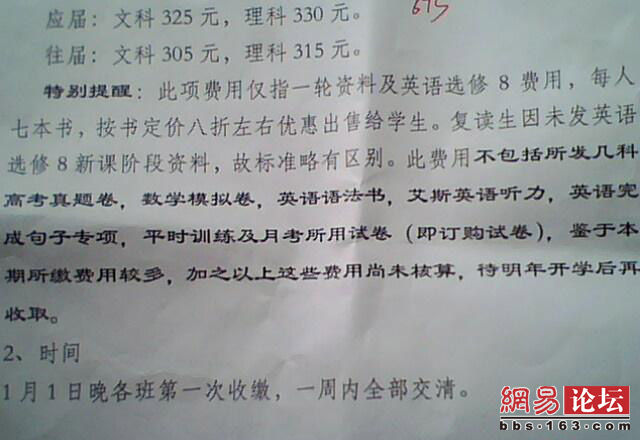 应届：文科 325 元，理科 330 元。
往届：文科 305 元，理科 315 元。
特别提醒：此项费用仅指一轮资料及英语选修 8 费用，每人
七本书，按书定价八折左右优惠出售给学生。复读生因未发英语
选修 8 新课阶段资料，故标准略有区别。此费用不包括所发几科
高考真题卷，数学模拟卷，英语语法书，艾斯英语听力，英语完
成句子专项，平时训练及月考所用试卷（即订购试卷），鉴于本
期所缴费用较多，加之以上这些费用尚未核算，待明年开学后再
收取。
2、时间
1 月 1 日晚各班第一次收缴，一周内全部交清。
網易 论坛
bbs·163.com